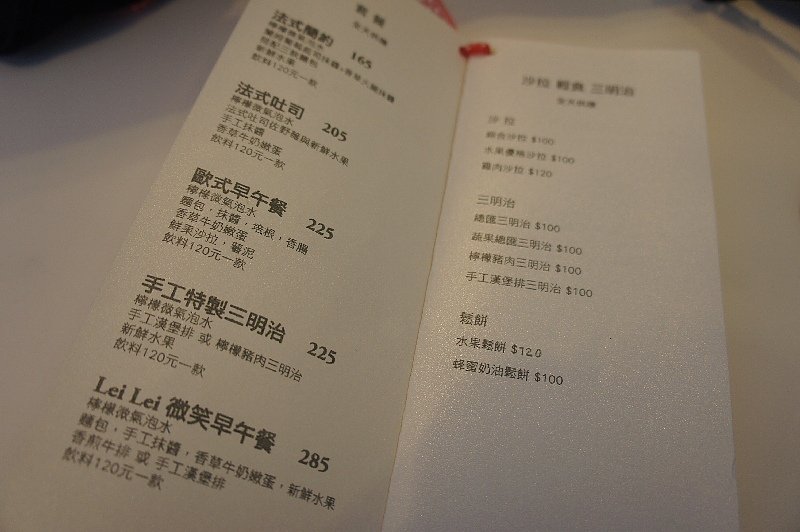 套餐
全天供應
法式簡約 165
檸檬微氣泡水
新鮮水果
飲料120元一款
法式吐司 205
檸檬微氣泡水
法式吐司佐野莓與新鮮水果
手工抹醬
香草牛奶嫩蛋
飲料120元一款
歐式早午餐 225
檸檬微氣泡水
麵包，抹醬，培根，香腸
香草牛奶嫩蛋
鮮果沙拉，薯泥
飲料120元一款
手工特製三明治 225
檸檬微氣泡水
手工漢堡排 或 檸檬豬肉三明治
新鮮水果
飲料120元一款
Lei Lei 微笑早午餐 285
檸檬微氣泡水
麵包，手工抹醬，香草牛奶嫩蛋，新鮮水果
香煎牛排 或 手工漢堡排
飲料120元一款
沙拉 輕食 三明治
全天供應
沙拉
沙拉 $100
水果優格沙拉 $100
雞肉沙拉 $120
三明治
總匯三明治 $100
蔬果總匯三明治 $100
檸檬豬肉三明治 $100
手工漢堡排三明治 $100
鬆餅
水果鬆餅 $120
蜂蜜奶油鬆餅 $100